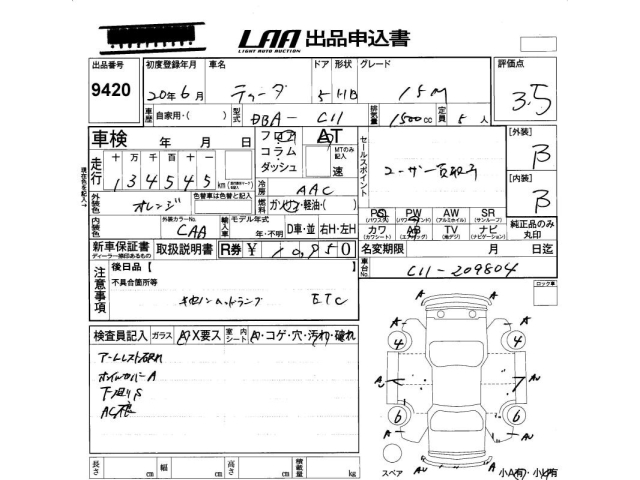 LAA 出品申込書
LIGHT AUTO AUCTION
出品番号 初度登録年月 車名 ドア 形状 グレード 評価点
9420 20年6月 ティーダ 5 HB 15M 3.5
車歴 自家用・( ) 型式 DBA-C11 排気量 1500cc 定員 5人
車検 年 月 日 フロア コラム ダッシュ AT MTのみ記入 速
セールスポイント ユーザー買取り
[外装] B
[内装] B
走行 十万千百十 134545 km
現在のを記入→
外装色 オレンジ 色替車は色替と記入
冷房 AAC
燃料 ガソリン・軽油・( )
内装色 外装カラーNo. CAA 輸入車 モデル年式 年・不明 D車・並 右H・左H
PS PW AW SR
(パワステ) (パワーウインド) (アルミホイル) (サンルーフ)
カワ AB TV ナビ
(カワシート) (エアバッグ) (地デジ) (ナビゲーション)
純正品のみ丸印
新車保証書 取扱説明書 R券 ¥10,950
ディーラー捺印あるもの
名変期限 月 日迄
車台No. C11-209804
注意事項 後日品【
不具合箇所等
キセノンヘッドランプ ETC
ロック車
検査員記入 ガラス A・X要ス 室内シート A・コゲ・穴・汚れ・破れ
アームレスト破れ
ホイルカバーA
下廻りS
A A
4 4
A
AU AU
6 6
A A
AU
スペア
小A(有)・小X有
長さ cm 幅 cm 高さ cm 積載量 kg